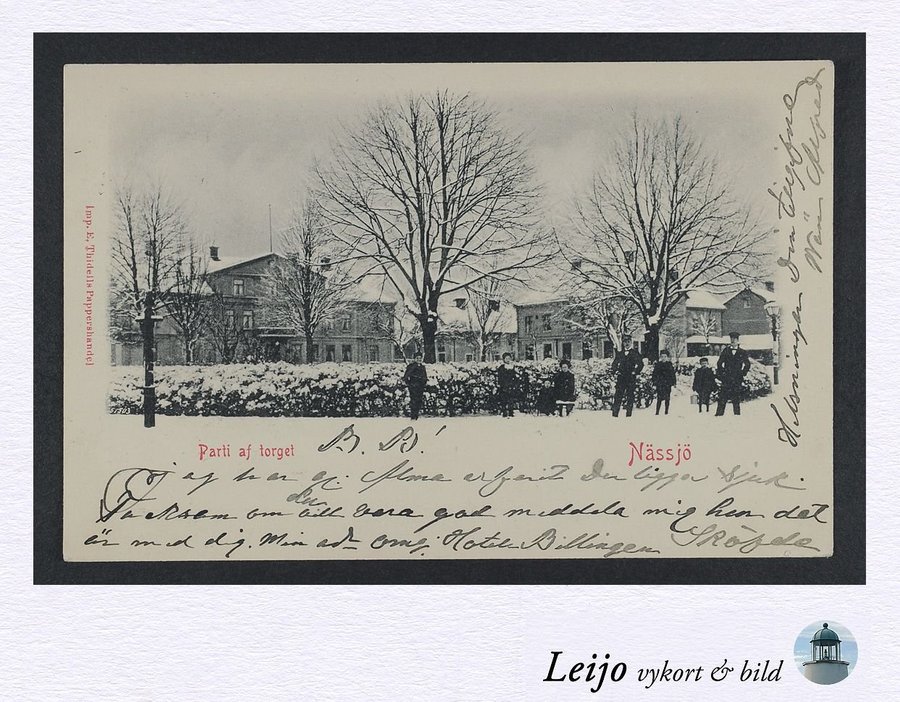 Imp. E. Thidells Pappershandel
Parti af torget
B. B!
Nässjö
jag har gj. Alma erfarit Du ligger sjuk.
Tacksam om du vill vara god meddela mig hur det
är med dig. Min adr omg. Hotel Billingen Sköfde
Helsningar från
Vän Alfred
Leijo vykort & bild